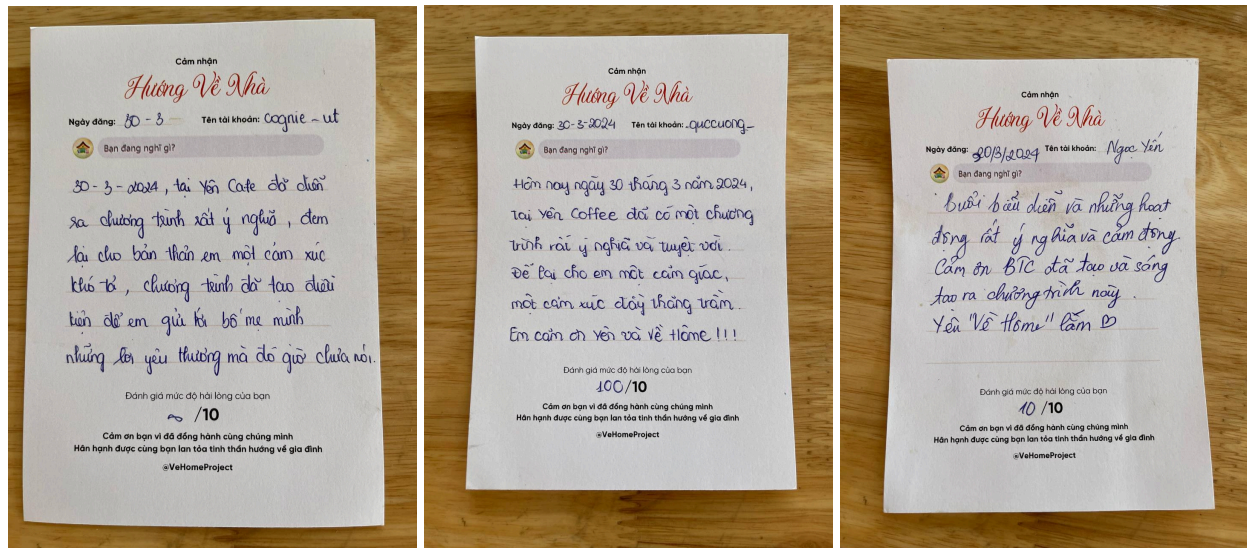 Cảm nhận
Hướng Về Nhà
Ngày đăng: 30-3 Tên tài khoản: cognie-ut
Bạn đang nghĩ gì?
30-3-2024, tại Yên Cafe đã diễn
ra chương trình rất ý nghĩa, đem
lại cho bản thân em một cảm xúc
khó tả, chương trình đã tạo điều
kiện để em gửi tới bố mẹ mình
những lời yêu thương mà đó giờ chưa nói.
Đánh giá mức độ hài lòng của bạn
∞/10
Cảm ơn bạn vì đã đồng hành cùng chúng mình
Hân hạnh được cùng bạn lan tỏa tinh thần hướng về gia đình
@VeHomeProject
Cảm nhận
Hướng Về Nhà
Ngày đăng: 30-3-2024 Tên tài khoản: _quccuong_
Bạn đang nghĩ gì?
Hôm nay ngày 30 tháng 3 năm 2024,
tại Yên Coffee đã có một chương
trình rất ý nghĩa và tuyệt vời.
Để lại cho em một cảm giác,
một cảm xúc đầy thăng trầm.
Em cảm ơn Yên và Về Home!!!
Đánh giá mức độ hài lòng của bạn
100/10
Cảm ơn bạn vì đã đồng hành cùng chúng mình
Hân hạnh được cùng bạn lan tỏa tinh thần hướng về gia đình
@VeHomeProject
Cảm nhận
Hướng Về Nhà
Ngày đăng: 30/3/2024 Tên tài khoản: Ngọc Yến
Bạn đang nghĩ gì?
Buổi biểu diễn và những hoạt
động rất ý nghĩa và cảm động
Cảm ơn BTC đã tạo và sáng
tạo ra chương trình này.
Yêu "Về Home" lắm ♡
Đánh giá mức độ hài lòng của bạn
10/10
Cảm ơn bạn vì đã đồng hành cùng chúng mình
Hân hạnh được cùng bạn lan tỏa tinh thần hướng về gia đình
@VeHomeProject